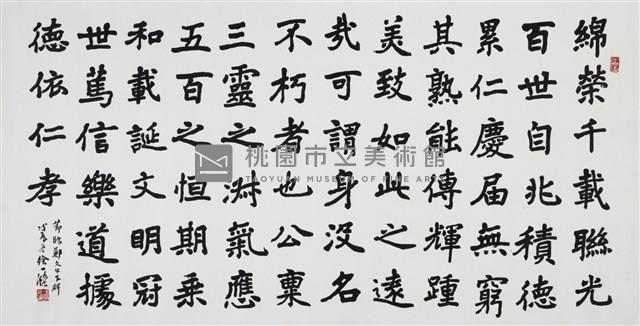 綿榮千載聯光
百世自非積德
累仁慶届無窮
其熟能傳輝踵
美致如此之遠
哉可謂身没名
不朽者也公禀
三靈之淑氣應
五百之恒期乗
和載誕文明冠
世篤信樂道據
德依仁孝
節臨鄭文公下碑
桃園市立美術館
TAOYUAN MUSEUM OF FINE ARTS